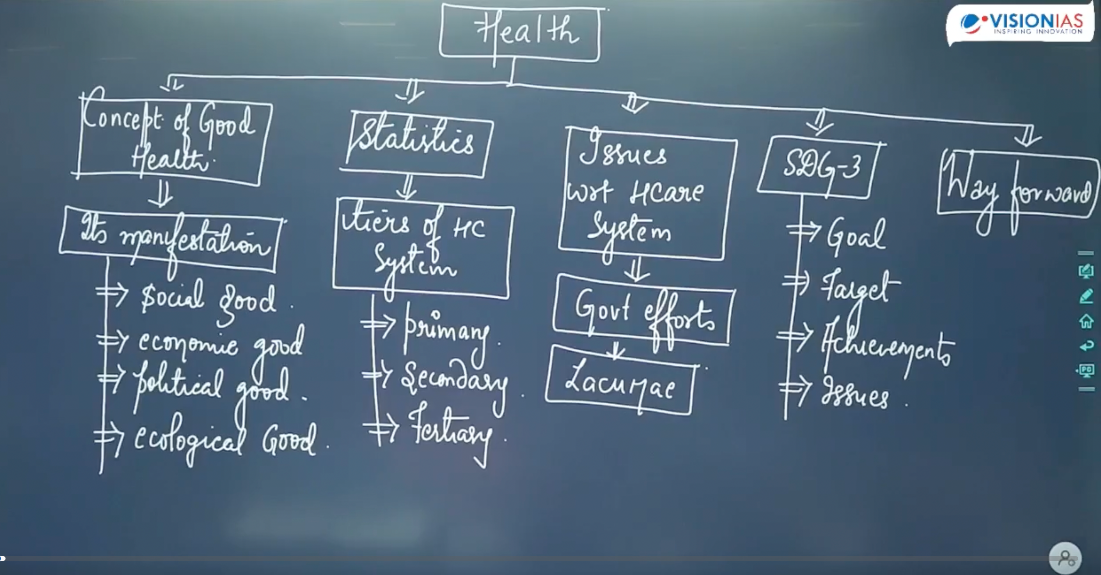 VISIONIAS
INSPIRING INNOVATION
Health
Concept of Good
Health
Its manifestation
⇒ Social good.
⇒ economic good
⇒ political good.
⇒ ecological Good.
Statistics
tiers of HC
System
⇒ primary.
⇒ Secondary.
⇒ Tertiary.
Issues
wrt HCare
System
Govt efforts
Lacunae
SDG-3
⇒ Goal
⇒ Target
⇒ Achievements
⇒ Issues.
Way forward